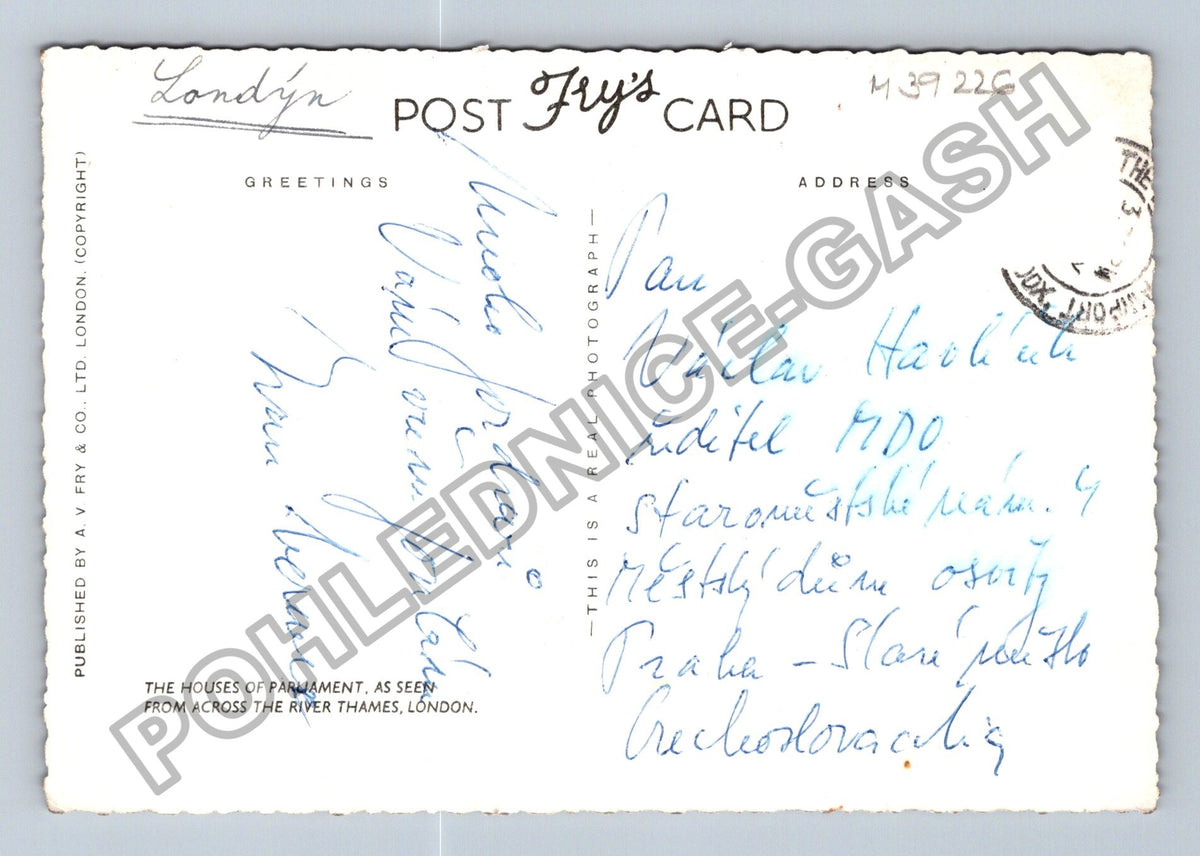 Londýn
POST Fry's CARD
M 39 226
GREETINGS
ADDRESS
PUBLISHED BY A. V. FRY & CO., LTD. LONDON. (COPYRIGHT)
—THIS IS A REAL PHOTOGRAPH—
Mnoho pozdravů
Vám všem
Pan
Václav Havlíček
ředitel MDO
Staroměstské nám. 4
Městský dům osvěty
Praha - Staré město
Czechoslovachia
THE HOUSES OF PARLIAMENT, AS SEEN
FROM ACROSS THE RIVER THAMES, LONDON.
POHLEDNICE-GASH